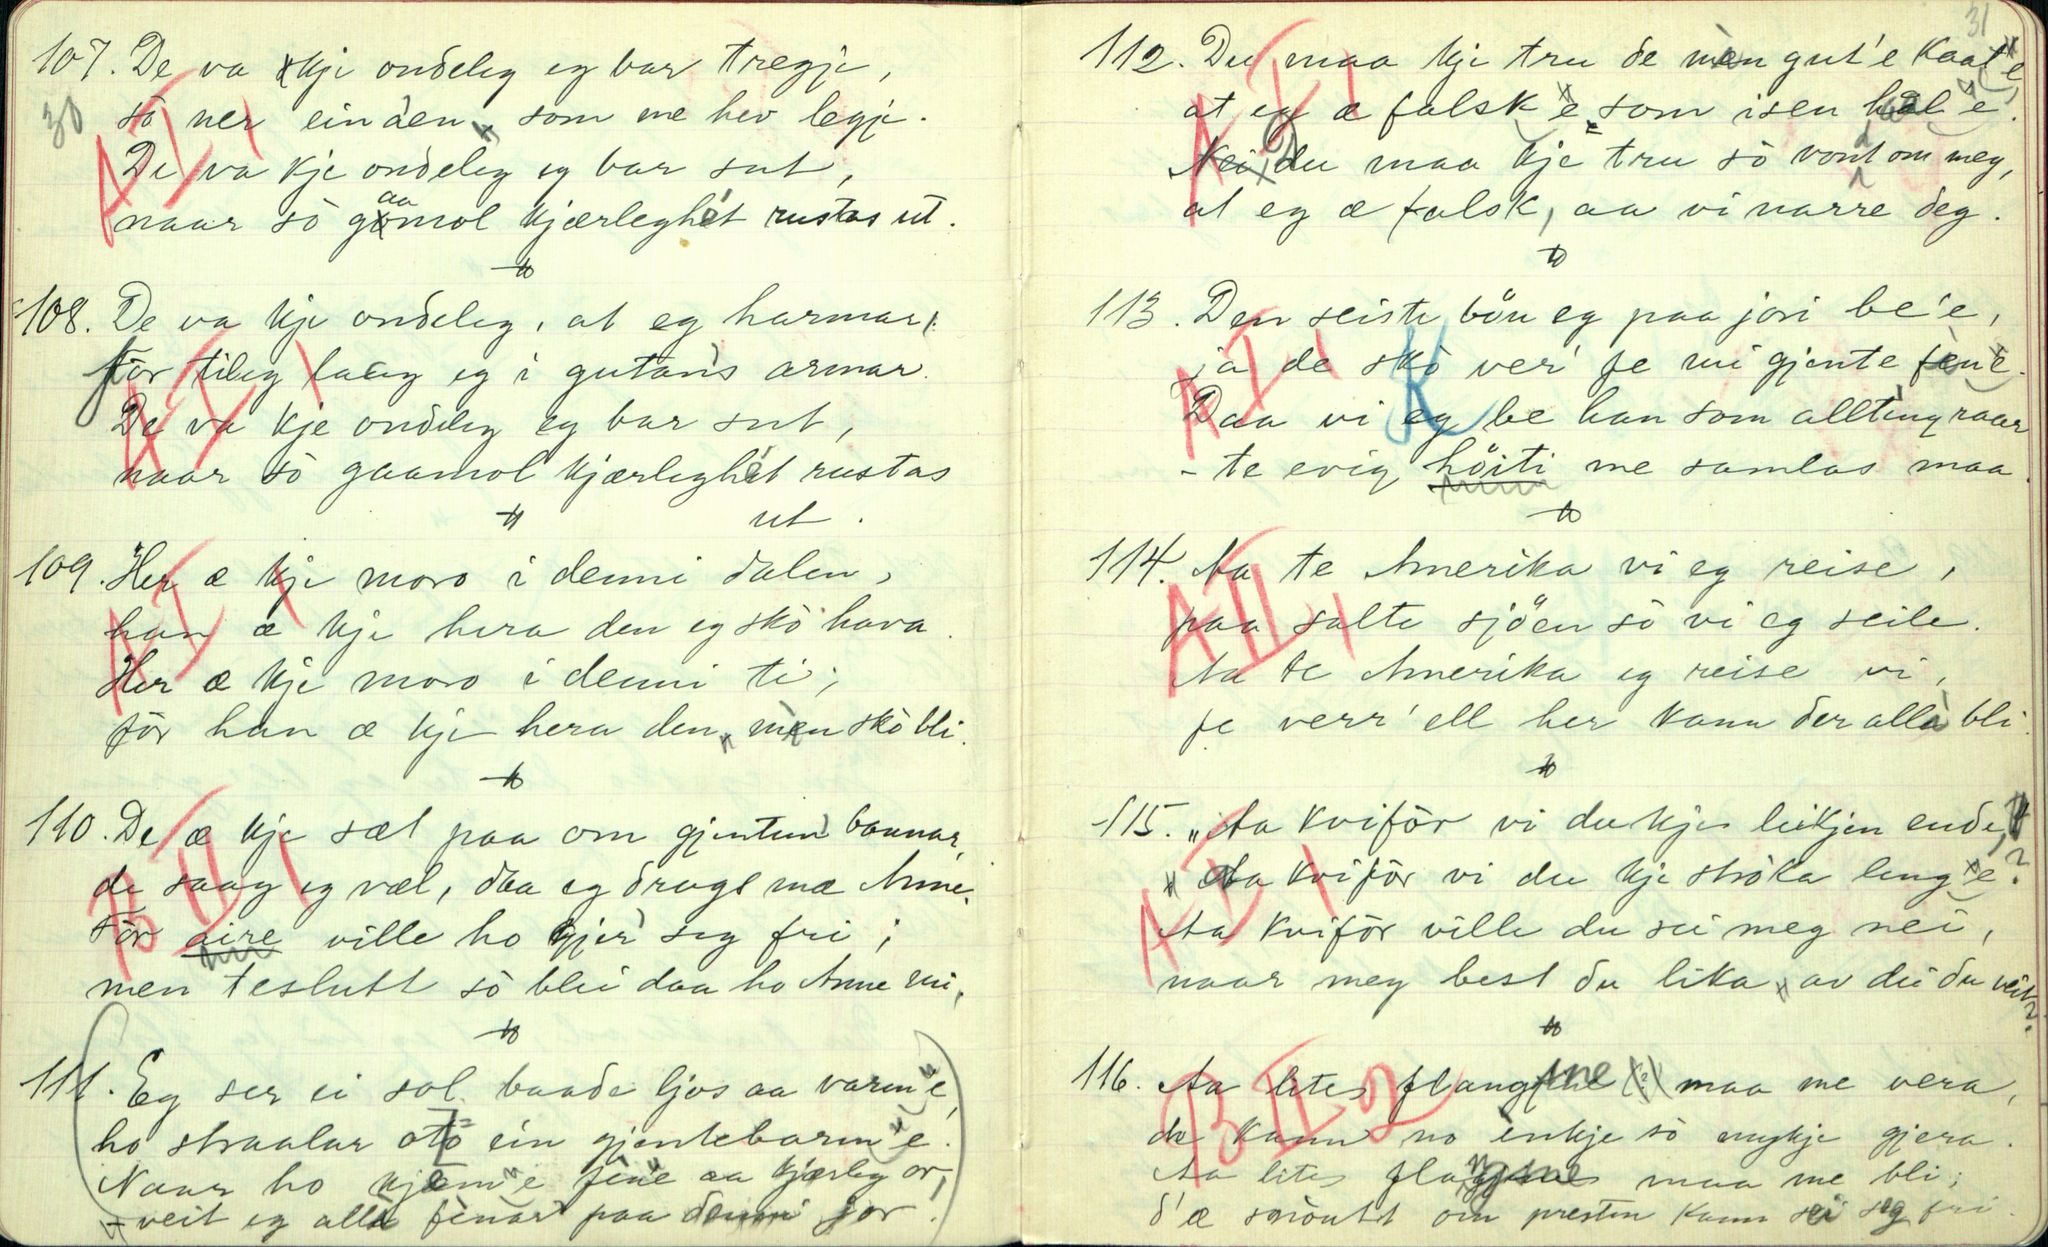 30
107. De va kje ondeleg eg bar tregje,
så ner einden, som me hev legje.
De va kje ondeleg eg bar sut,
naar sò gaamol kjærleghét rustas ut.
108. De va kje ondeleg, at eg harmar,
för tileg laag eg i gutans armar.
De va kje ondeleg eg bar sut,
naar sò gaamol kjærleghét rustas
ut.
109. Her æ kje moro i denni dalen,
han æ kje hera den eg skò hava.
Her æ kje moro i denni ti;
för han æ kje hera den, men skò bli.
110. De æ kje sæt paa om gjentun bannar,
de saag eg væl, daa eg drogs mæ Anne.
För aire ville ho gjer seg fri;
men teslutt sò blei daa ho Anne mi.
111. Eg ser ei sol baade ljos aa varm'e,
ho straalar otò ein gjentebarm'e.
Naar ho kjem'e fin'e aa kjærleg or,
- veit eg alli finar paa denni jor.
31
112. Du maa kje tru de men gut'e kaat'e,
at eg æ falsk'e som isen hal'e.
Nei du maa kje tru sò vondt om meg,
at eg æ falsk, aa vi narre deg.
113. Den seiste bön eg paa jori be'e,
ja de skò ver' fe mi gjente fin'e.
Daa vi eg be han som allting raar
- te evig höiti me samlas maa.
114. Aa te Amerika vi eg reise,
paa salte sjöen sò vi eg seile.
Aa te Amerika eg reise vi,
fe verr' ell her kann der alli bli.
115. "Aa kviför vi du kje leikjen ende,
Aa kviför vi du kje stròka leng'e?
Aa kviför ville du sei meg nei,
naar meg best du lika av dei du veit?
116. Aa lites maa me vera,
de kann no inkje sò mykje gjera.
Aa lites maa me bli;
d'æ om presten kann sei seg fri.
A I 1
A I 1
A I 1
B II 1
A I 1
A I 1
K
A II 1
A I 1
B II 2